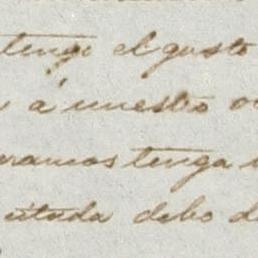 tengo el gusto
á nuestro
eramos tenga
citada debo d